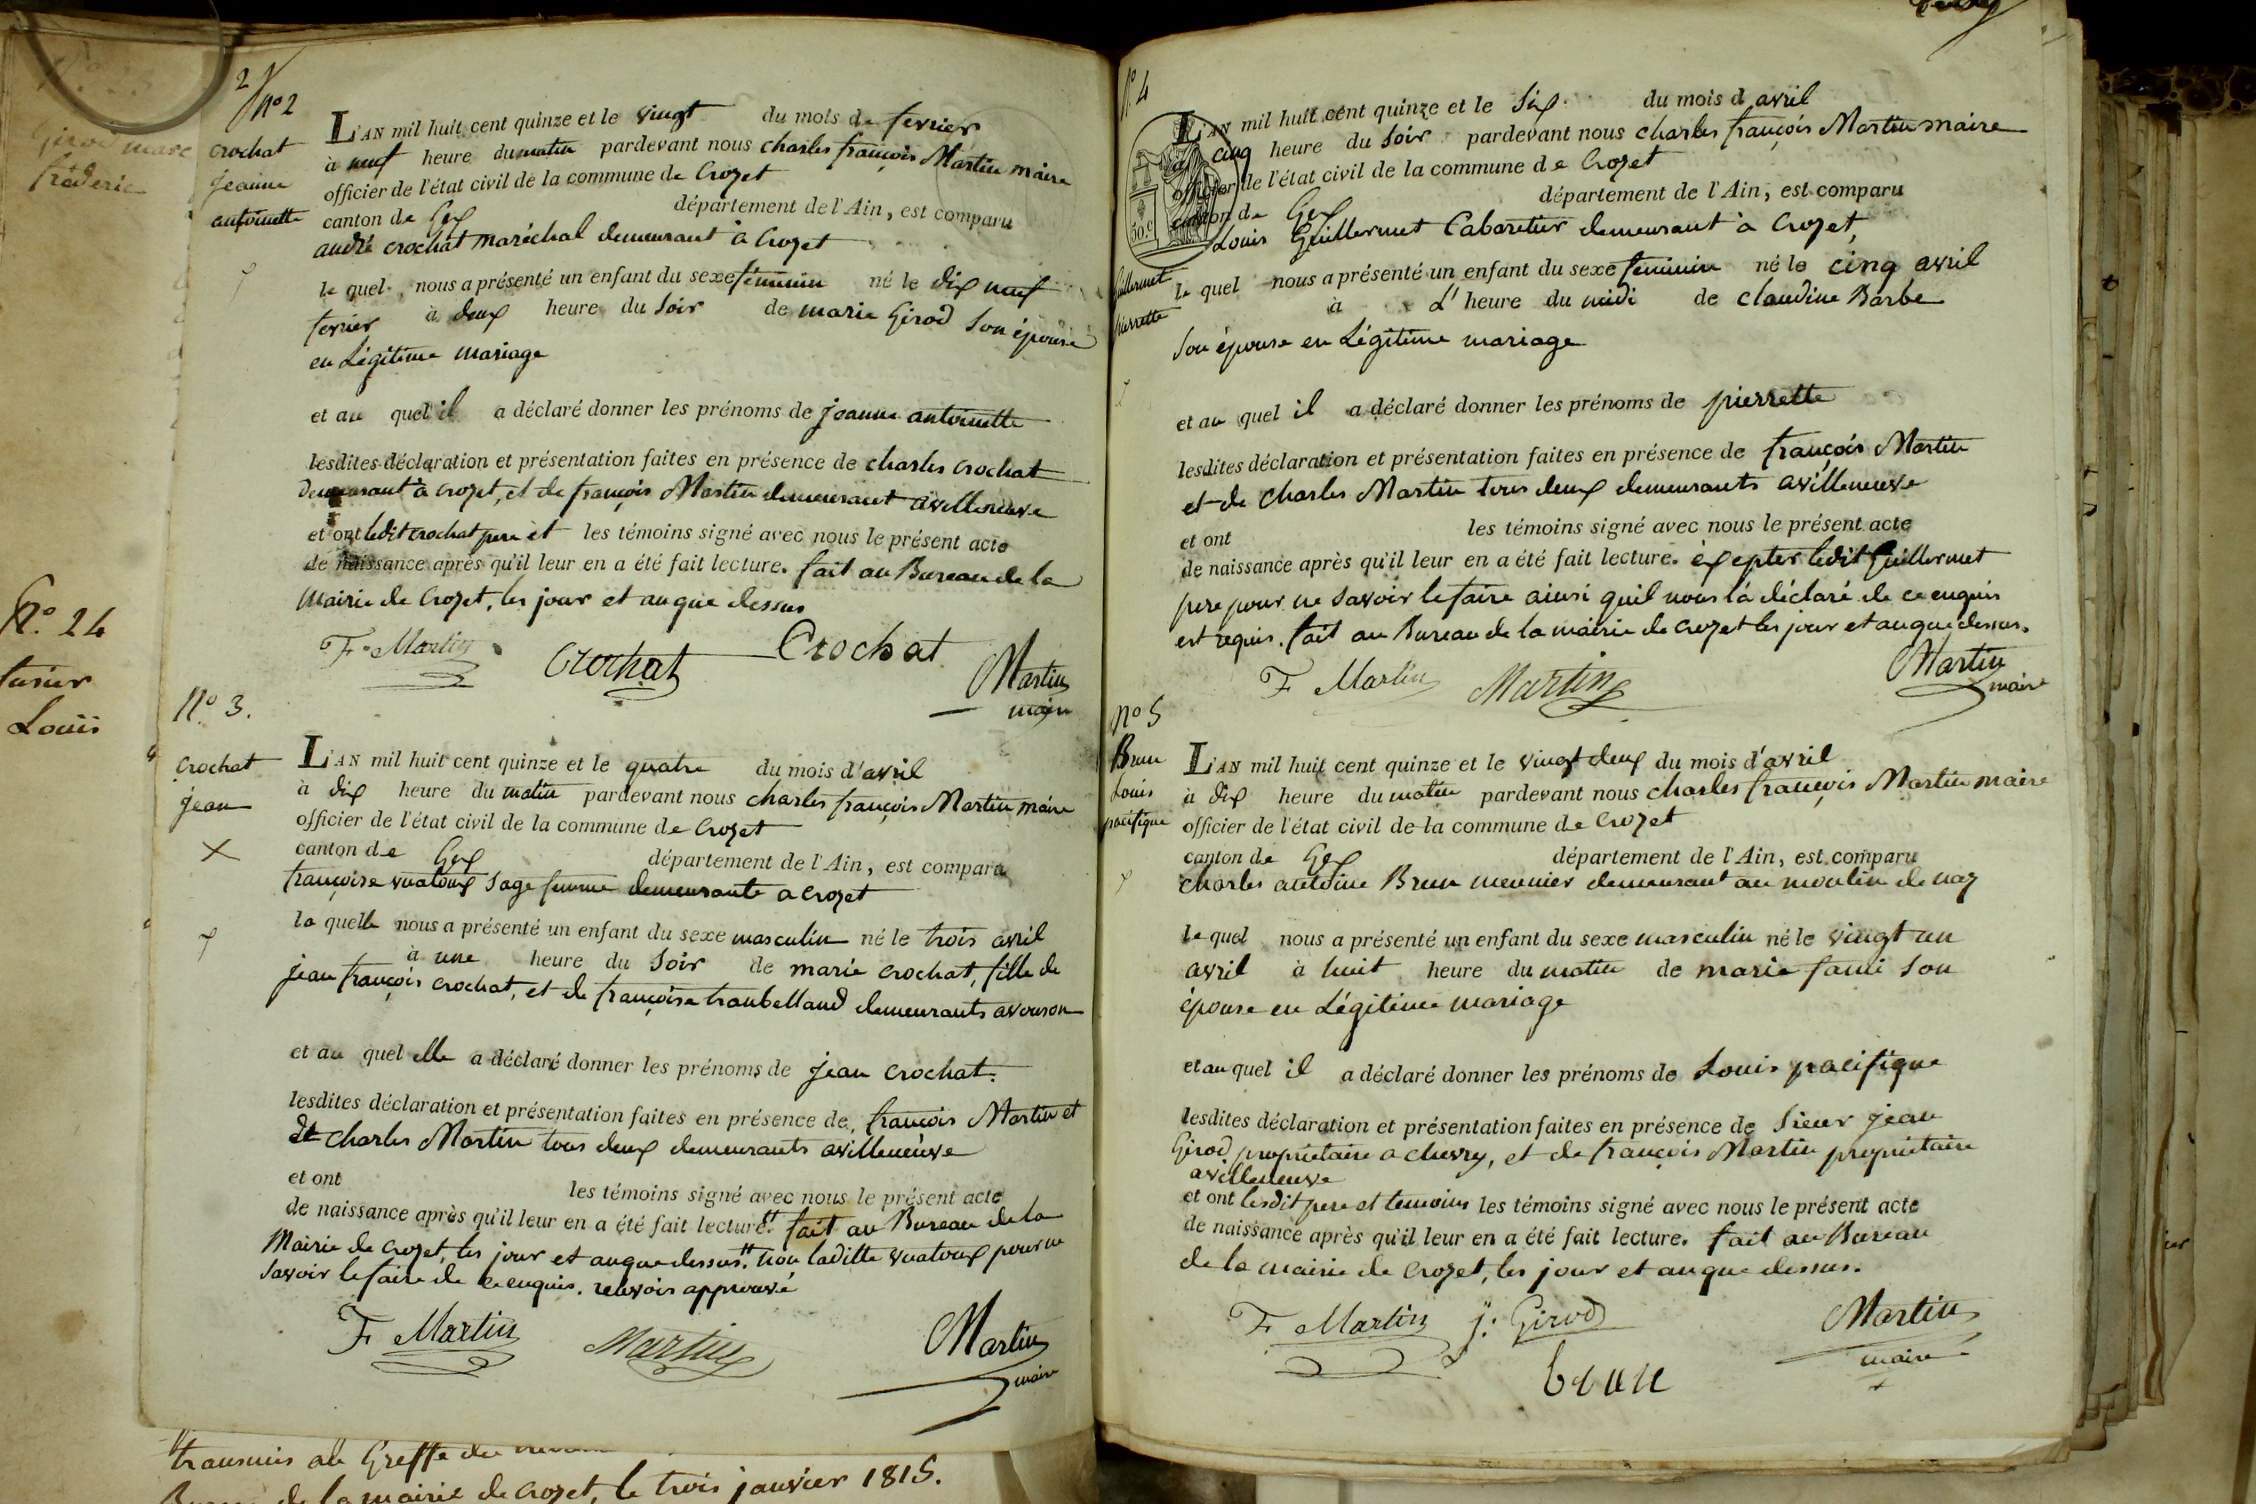 Girod marc
fréderic
N.º 24
Louis
2
Nº 2
crochat
jeanne
antoinette
L'AN mil huit cent quinze et le vingt du mois de fevrier
à neuf heure du matin pardevant nous charles françois Martin maire
officier de l'état civil de la commune de Crozet
canton de Gex département de l'Ain, est comparu
andré crochat maréchal demeurant à Crozet
le quel nous a présenté un enfant du sexe féminin né le dix neuf
fevrier à deux heure du soir de marie Girod son épouse
en Légitime mariage
et au quel il a déclaré donner les prénoms de jeanne antoinette
lesdites déclaration et présentation faites en présence de charles crochat
demeurant à crozet, et de françois Martin demeurant avilleneuve
et ont ledit crochat pere et les témoins signé avec nous le présent acte
de naissance après qu'il leur en a été fait lecture. fait au Bureau de la
Mairie de Crozet, les jour et an que dessus
F. Martin Crochat Crochat Martin
maire
Nº 3.
crochat
jean
L'AN mil huit cent quinze et le quatre du mois d'avril
à dix heure du matin pardevant nous charles françois Martin maire
officier de l'état civil de la commune de Crozet
canton de Gex département de l'Ain, est comparu
françoise vuatoux sage femme demeurante a crozet
la quelle nous a présenté un enfant du sexe masculin né le trois avril
à une heure du soir de marie crochat, fille de
jean françois crochat, et de françoise traubelland demeurants avouson
et au quel elle a déclaré donner les prénoms de jean crochat.
lesdites déclaration et présentation faites en présence de françois Martin et
de charles Martin tous deux demeurants avilleneuve
et ont les témoins signé avec nous le présent acte
de naissance après qu'il leur en a été fait lecture. fait au Bureau de la
Mairie de Crozet, les jour et an que dessus. non laditte vuatoux pour ne
savoir le faire de ce enquis. relevois approuvé
F Martin Martin Martin
maire
transmis au Greffe du
de la mairie de crozet, le trois janvier 1815.
Nº 4
guillermet
pierrette
L'AN mil huit cent quinze et le six du mois d avril
à cinq heure du soir pardevant nous charles françois Martin maire
officier de l'état civil de la commune de Crozet
canton de Gex département de l'Ain, est comparu
Louis Guillermet Cabaretier demeurant à Crozet,
le quel nous a présenté un enfant du sexe feminin né le cinq avril
à L' heure du midi de claudine Barbe
son épouse en Légitime mariage
et au quel il a déclaré donner les prénoms de pierrette
lesdites déclaration et présentation faites en présence de françois Martin
et de Charles Martin tous deux demeurants avilleneuve
et ont les témoins signé avec nous le présent acte
de naissance après qu'il leur en a été fait lecture. exepter ledit Guillermet
pere pour ne savoir le faire ainsi quil nous la déclaré de ce enquis
est requis. fait au Bureau de la mairie de crozet les jour et an que dessus.
F Martin Martin Martin
maire
Nº 5
Brun
Louis
pacifique
L'AN mil huit cent quinze et le vingt deux du mois d'avril
à dix heure du matin pardevant nous charles françois Martin maire
officier de l'état civil de la commune de Crozet
canton de Gex département de l'Ain, est comparu
charles antoine Brun meunier demeurant au moulin de naz
le quel nous a présenté un enfant du sexe masculin né le vingt un
avril à huit heure du matin de marie fami son
épouse en Légitime mariage
et au quel il a déclaré donner les prénoms de Louis pacifique
lesdites déclaration et présentation faites en présence de sieur jean
Girod propriétaire a chevry, et de françois Martin propriétaire
avilleneuve
et ont lesdit pere et temoins les témoins signé avec nous le présent acte
de naissance après qu'il leur en a été fait lecture. fait au Bureau
de la mairie de crozet, les jour et an que dessus.
F Martin j: Girod Martin
maire
brun